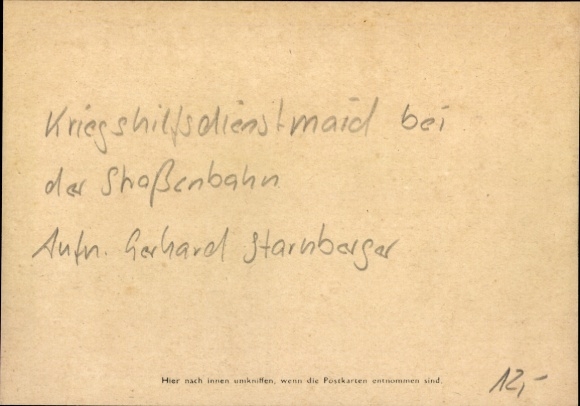 Kriegshilfsdienstmaid bei
der Straßenbahn
Aufn. Gerhard Starnberger
Hier nach innen umkniffen, wenn die Postkarten entnommen sind.
12,-